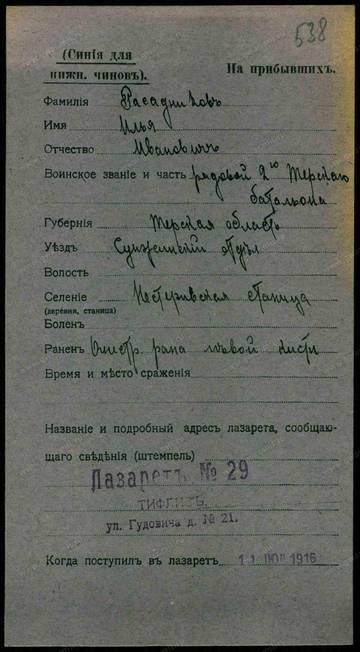 538
(Синія для
нижн. чиновъ).
На прибывшихъ.
Фамилія Расадниковъ
Имя Илья
Отчество Ивановичъ
Воинское званіе и часть рядовой 2го Терскаго
баталіона
Губернія Терская область
Уѣздъ Сунженскій отдѣл
Волость
Селеніе Нестеровская станица
(деревня, станица)
Боленъ
Раненъ Огнестр. рана лѣвой кисти
Время и мѣсто сраженія
Названіе и подробный адресъ лазарета, сообщаю-
щаго свѣдѣнія (штемпель)
Лазаретъ № 29
ТИФЛИСЪ.
ул. Гудовича д. № 21.
Когда поступилъ въ лазаретъ 11 1916